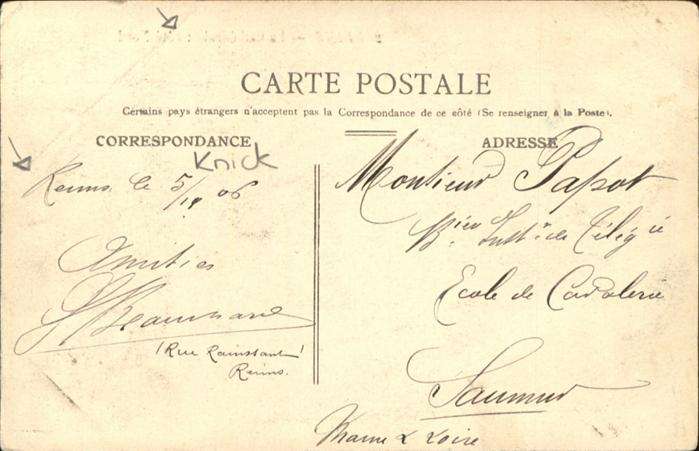 CARTE POSTALE
Certains pays étrangers n'acceptent pas la Correspondance de ce côté (Se renseigner à la Poste).
CORRESPONDANCE
ADRESSE
Knick
Reims le 5/ 06
Amitiés
Rue
Reims.
Monsieur Papot
de
Ecole de Cavalerie
Saumur
Maine & Loire